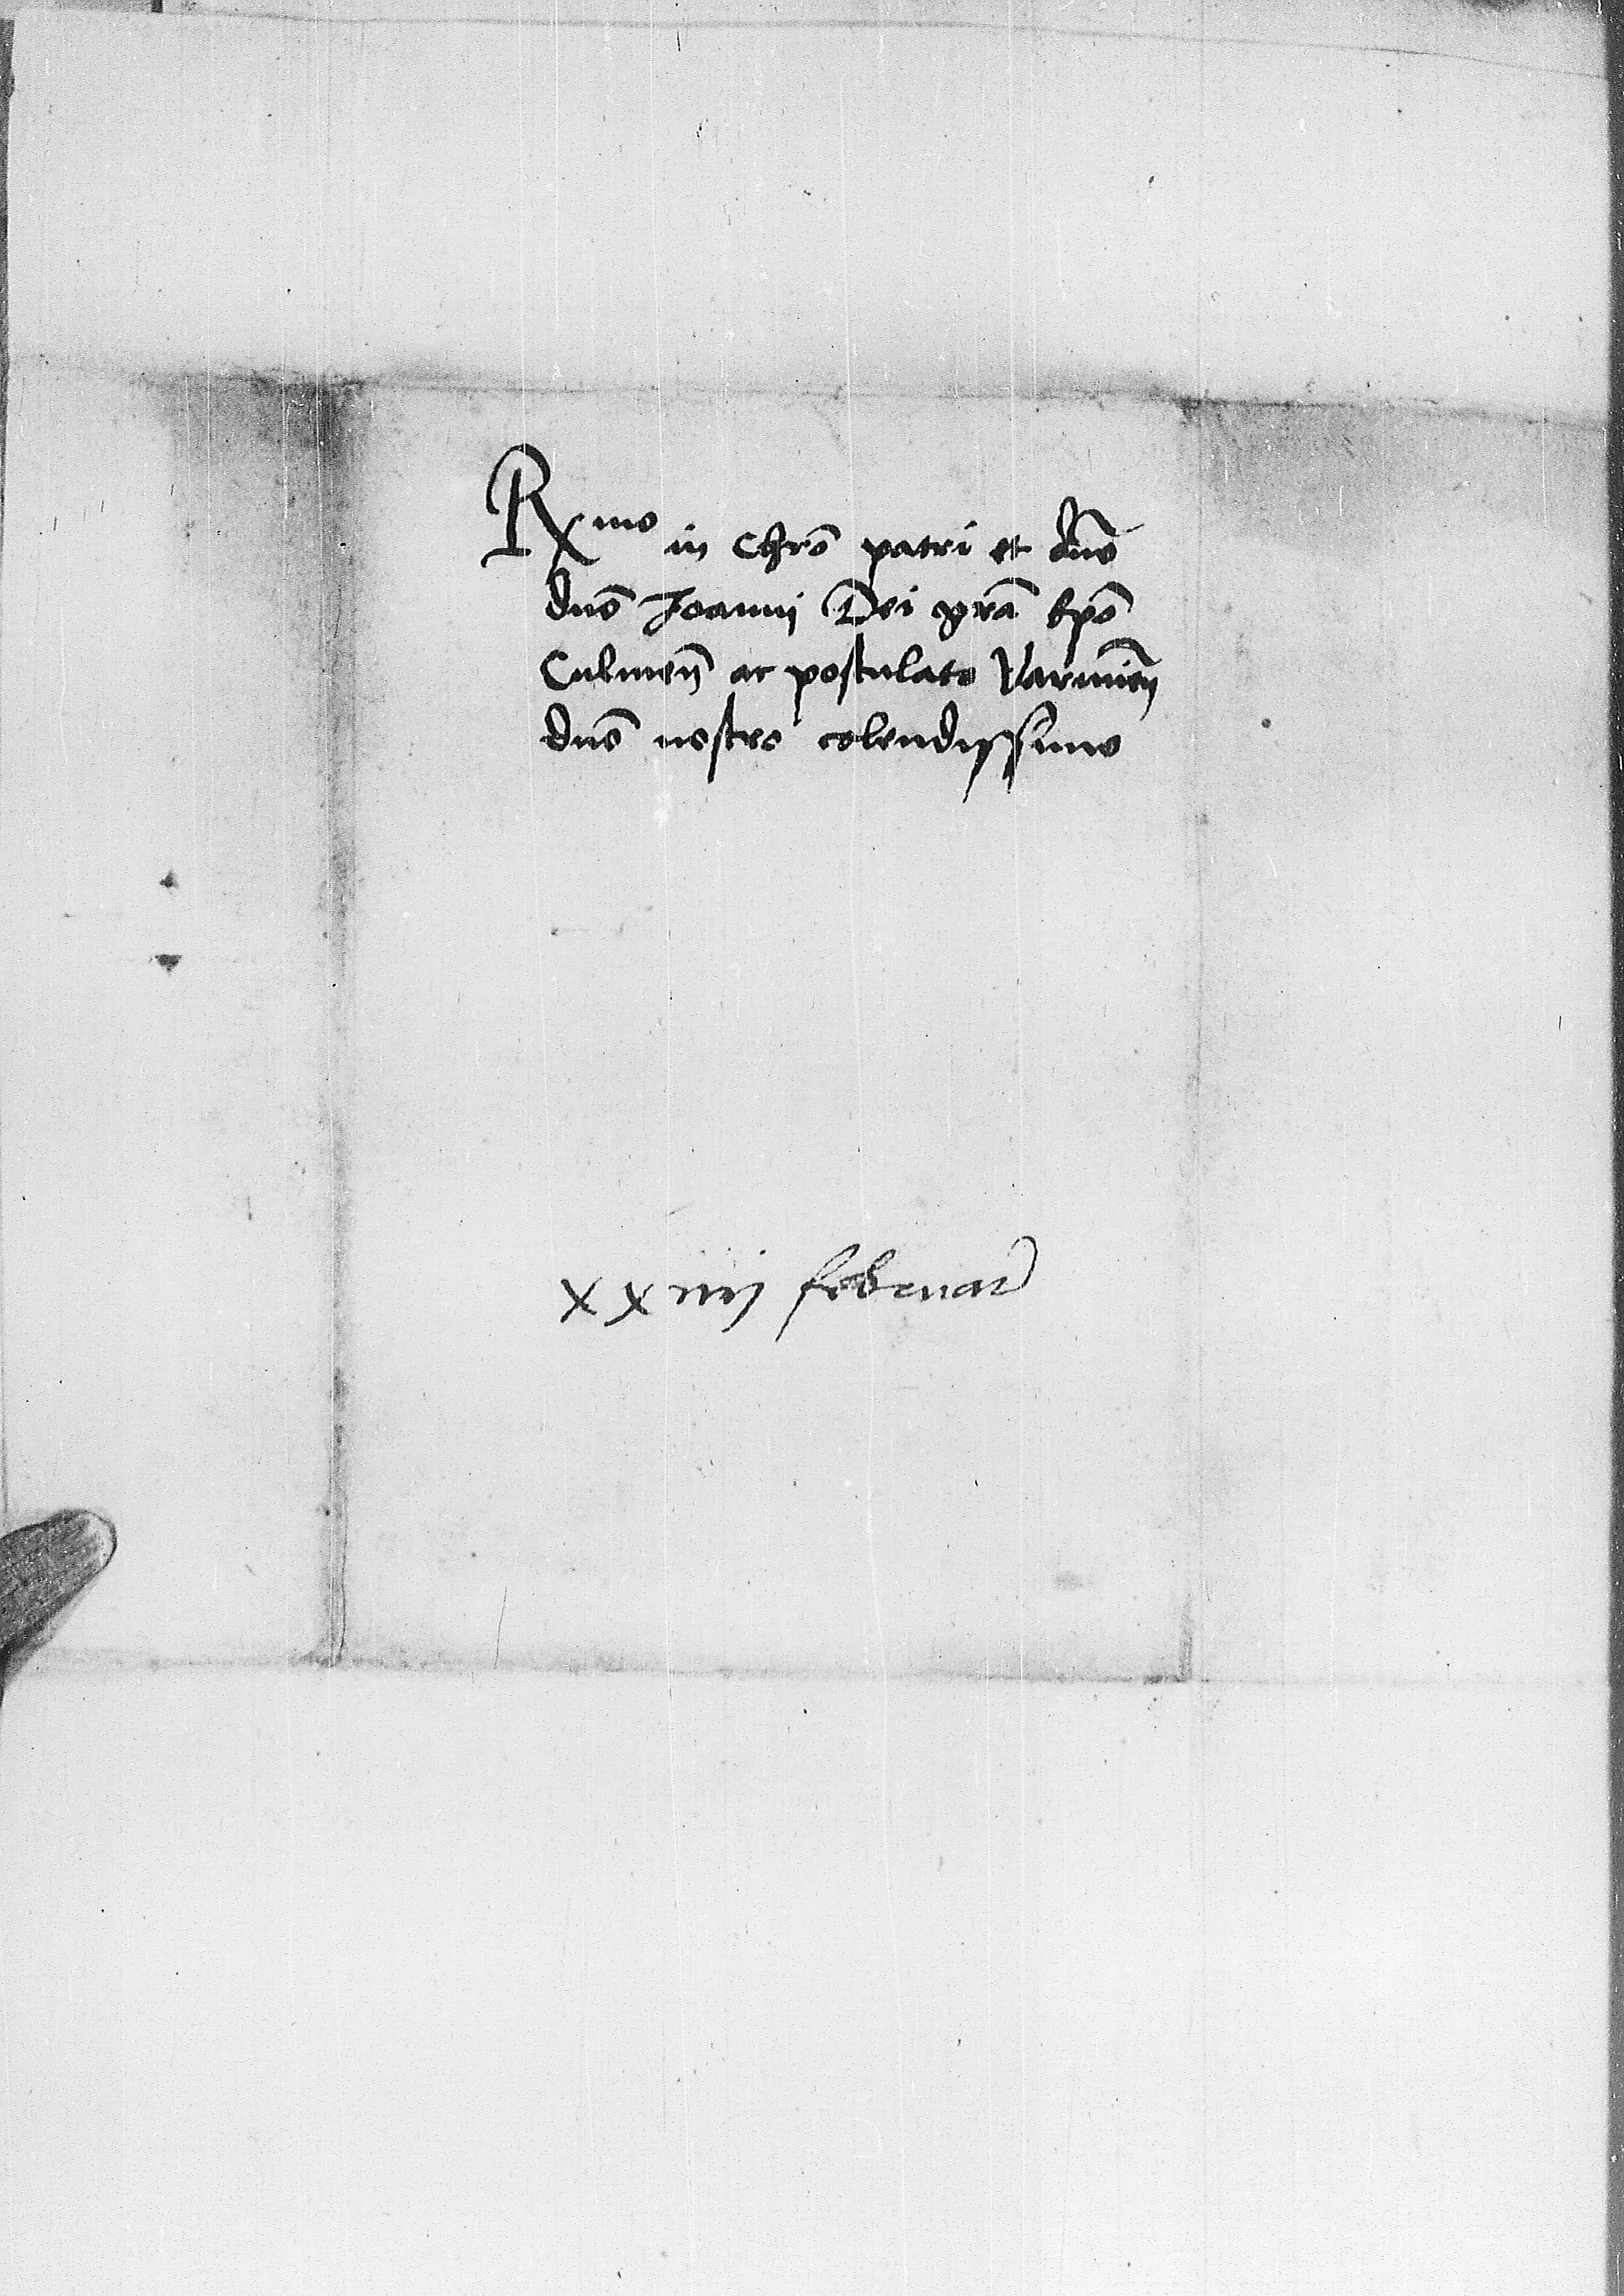 Rxmo in Chro͂ patri et dn͂o
dn͂o Joanni Dei gr͂a Ep͂o
Culmen͂ ac postulato Varmien͂
dn͂o nostro colendissimo
xxiiij februar